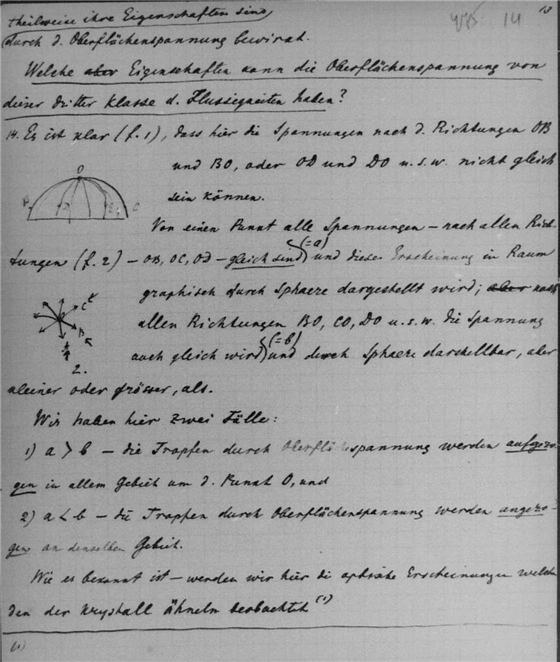 theilweise ihre Eigenschaften sind
14
durch d. Oberflächenspannung bewirkt.
Welche aber Eigenschaften kann die Oberflächenspannung von
dieser dritter Klasse d. Flussigkeiten haben?
14. Es ist klar (f. 1), dass hier die Spannungen nach d. Richtungen OB
und BO, oder OD und DO u.s.w. nicht gleich
sein können.
Von einen Punkt alle Spannungen – nach allen Rich-
tungen (f. 2) – OB, OC, OD – gleich sind (=a) und diese Erscheinung in Raum
graphisch durch Sphaere dargestellt wird; aber nach
allen Richtungen BO, CO, DO u.s.w. die Spannung
auch gleich wird (=b) und durch Sphaere darstellbar, aber
2.
kleiner oder grösser, als.
Wir haben hier zwei Fälle:
1) a > b – die Tropfen durch Oberflächenspannung werden aufgezo-
gen in allem Gebiet um d. Punkt O, und
2) a < b – die Tropfen durch Oberflächenspannung werden angezo-
gen an denselben Gebiet.
Wie es bekannt ist – werden wir hier die optische Erscheinungen welch
den der Krystall ähneln beobachtet (1)
(1)